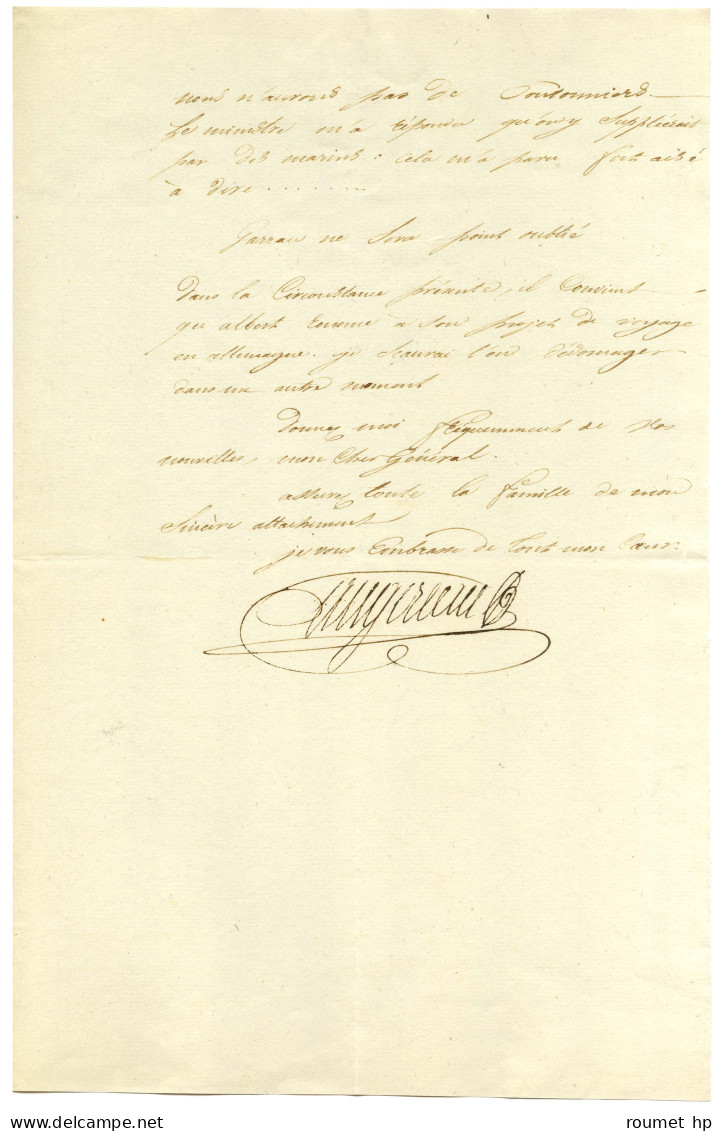 nous n'aurons pas de Pontonniers.
Le ministre m'a répondu qu'on y Suppléerait
par des marins : cela m'a paru fort aisé
à dire .......
Garrau ne Sera point oublié
dans la Circonstance présente, il Convient
qu'albert renonce à son projet de voyage
en allemagne. je Scaurai l'en dédomager
dans un autre moment
donnez moi fréquemment de vos
nouvelles, mon Cher Général.
assurez toute la famille de mon
Sincère attachement
je vous Embrasse de tout mon Cœur.
Augereau
roumet hp